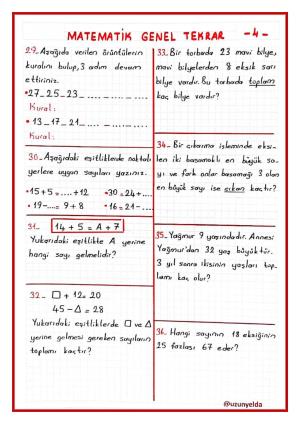 MATEMATİK GENEL TEKRAR -4-
29- Aşağıda verilen örüntülerin
kuralını bulup, 3 adım devam
ettiriniz.
• 27 _ 25 _ 23 _ .... _ .... _ ....
Kural:
• 13 _ 17 _ 21 _ .... _ .... _ ....
Kural:
30- Aşağıdaki eşitliklerde noktalı
yerlere uygun sayıları yazınız.
• 15 + 5 = .... + 12 • 30 = 24 + ....
• 19 - .... = 9 + 8 • 16 = 21 - ....
31- 14 + 5 = A + 7
Yukarıdaki eşitlikte A yerine
hangi sayı gelmelidir?
32- □ + 12 = 20
45 - △ = 28
Yukarıdaki eşitliklerde □ ve △
yerine gelmesi gereken sayıların
toplamı kaçtır?
33- Bir torbada 23 mavi bilye,
mavi bilyelerden 8 eksik sarı
bilye vardır. Bu torbada toplam
kaç bilye vardır?
34- Bir çıkarma işleminde eksi-
len iki basamaklı en büyük sa-
yı ve fark onlar basamağı 3 olan
en büyük sayı ise çıkan kaçtır?
35- Yağmur 9 yaşındadır. Annesi
Yağmur'dan 32 yaş büyüktür.
3 yıl sonra ikisinin yaşları top-
lamı kaç olur?
36- Hangi sayının 18 eksiğinin
25 fazlası 67 eder?
@uzunyelda